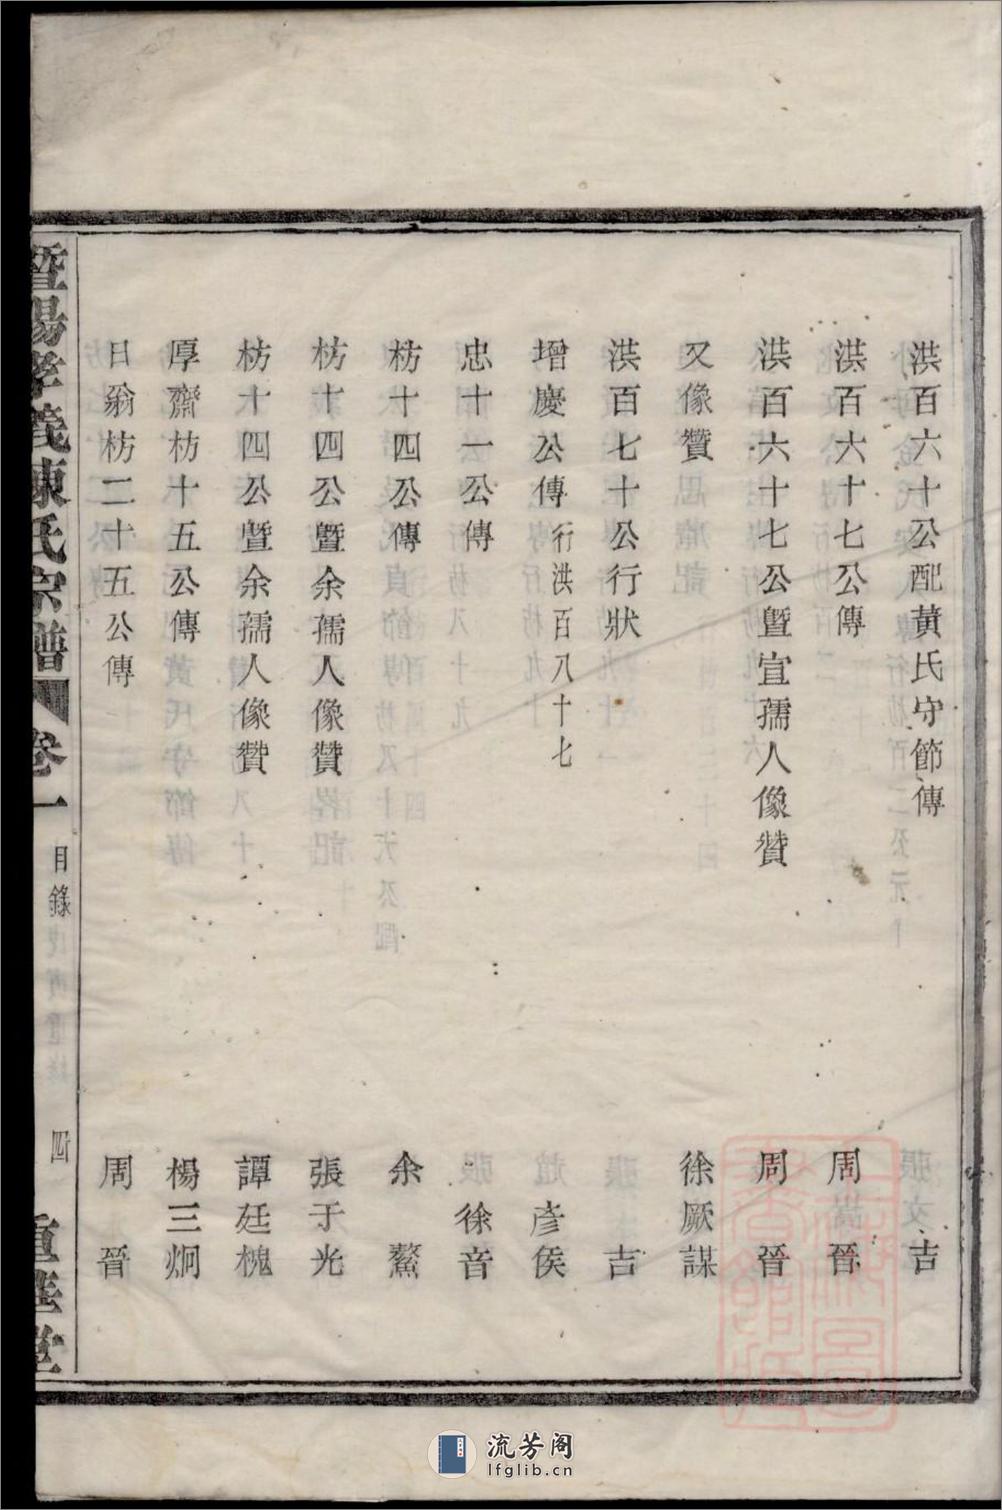 洪百六十公配黃氏守節傳 吉
洪百六十七公傳 周晉
洪百六十七公暨宜孺人像贊 周晉
又像贊 徐厥謀
洪百七十公行狀 吉
增慶公傳行洪百八十七 彥侯
忠十一公傳 徐音
枋十四公傳 余鰲
枋十四公暨余孺人像贊 張于光
枋十四公暨余孺人像贊 譚廷槐
厚齋枋十五公傳 楊三炯
日翁枋二十五公傳 周晉
暨陽孝義陳氏宗譜 卷一 目錄 四 重華堂
流芳阁
lfglib.cn